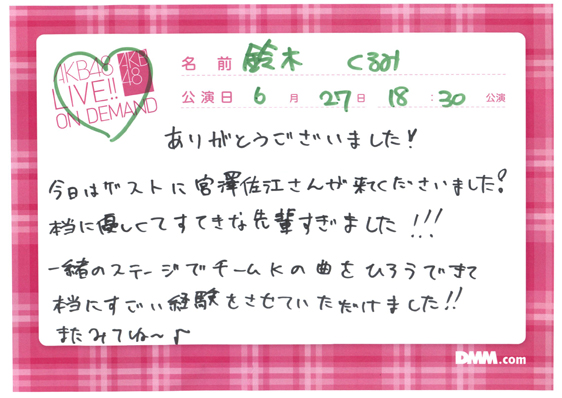 AKB48
LIVE!!
ON DEMAND
AKB
48
名前 鈴木 くるみ
公演日 6月 27日 18:30 公演
ありがとうございました!
今日はゲストに宮澤佐江さんが来てくださいました!
本当に優しくてすてきな先輩すぎました!!!
一緒のステージでチームKの曲をひろうできて
本当にすごい経験をさせていただけました!!
またみてね〜♪
DMM.com